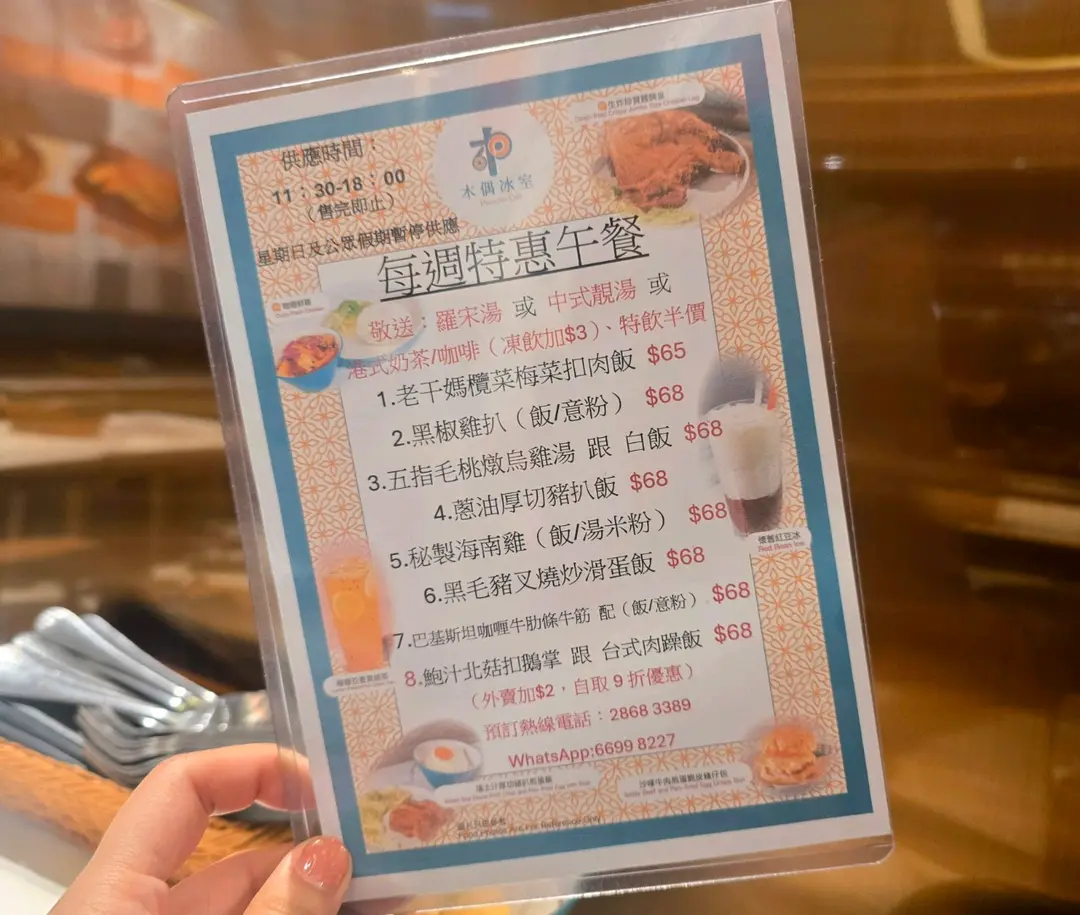 供應時間：
11：30-18：00
（售完即止）
星期日及公眾假期暫停供應
木偶冰室
生炸珍寶雞髀
每週特惠午餐
敬送：羅宋湯 或 中式靚湯 或
港式奶茶/咖啡（凍飲加$3）、特飲半價
1.老干媽欖菜梅菜扣肉飯 $65
2.黑椒雞扒（飯/意粉） $68
3.五指毛桃燉烏雞湯 跟 白飯 $68
4.蔥油厚切豬扒飯 $68
5.秘製海南雞（飯/湯米粉） $68
6.黑毛豬叉燒炒滑蛋飯 $68
7.巴基斯坦咖喱牛肋條牛筋 配（飯/意粉） $68
8.鮑汁北菇扣鵝掌 跟 台式肉躁飯 $68
（外賣加$2，自取 9 折優惠）
預訂熱線電話：2868 3389
WhatsApp:6699 8227
懷舊紅豆冰
Red Bean Ice
沙嗲牛肉煎蛋脆皮豬仔包
Food Photos Are For Reference Only